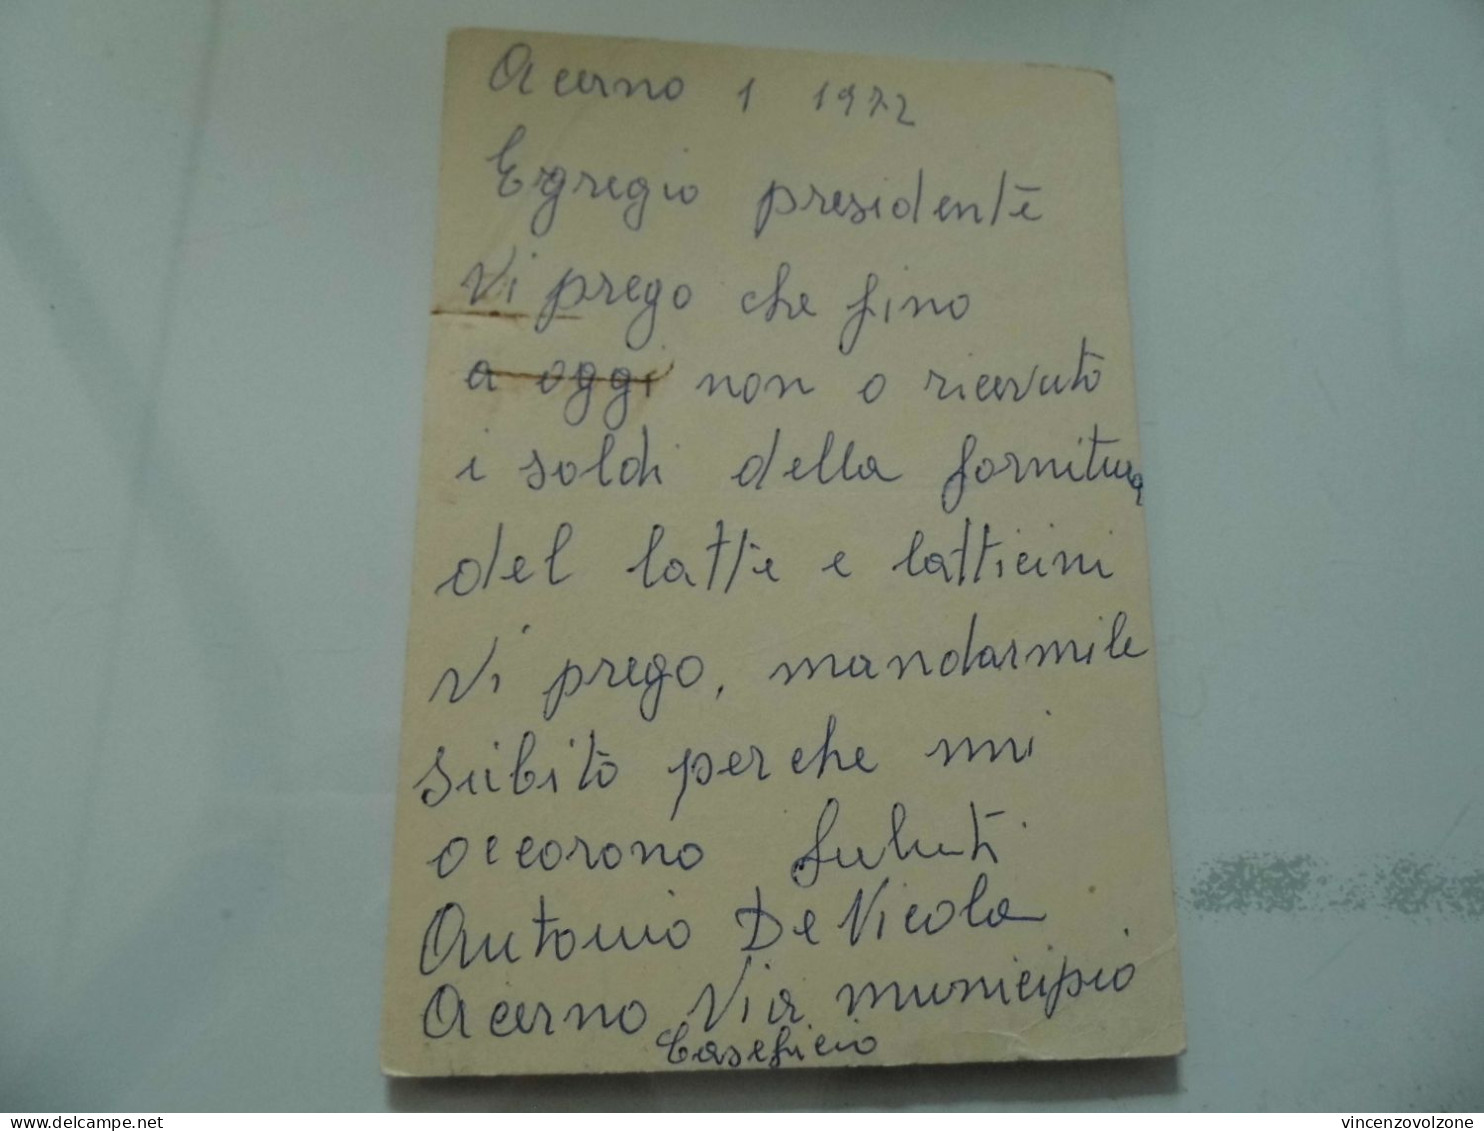 Acerno 1 1972
Egregio presidente
Vi prego che fino
a oggi non o ricevuto
i soldi della fornitura
del latte e latticini
Vi prego, mandarmile
subito perche mi
occorono Saluti
Antonio De Nicola
Acerno Via municipio
Caseficio
vincenzovolzone